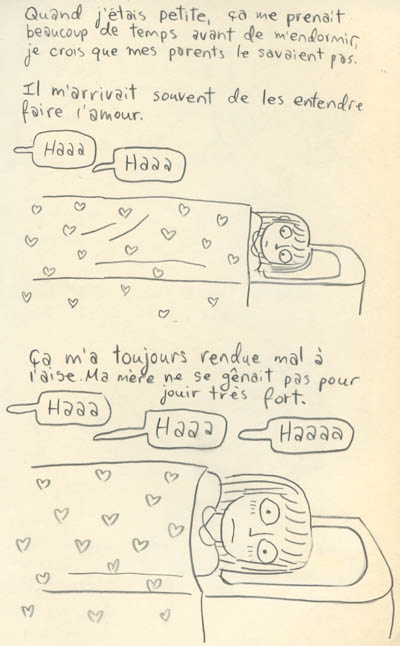 Quand j'étais petite, ça me prenait
beaucoup de temps avant de m'endormir,
je crois que mes parents le savaient pas.
Il m'arrivait souvent de les entendre
faire l'amour.
Haaa
Haaa
Ça m'a toujours rendue mal à
l'aise. Ma mère ne se gênait pas pour
jouir très fort.
Haaa
Haaa
Haaaa